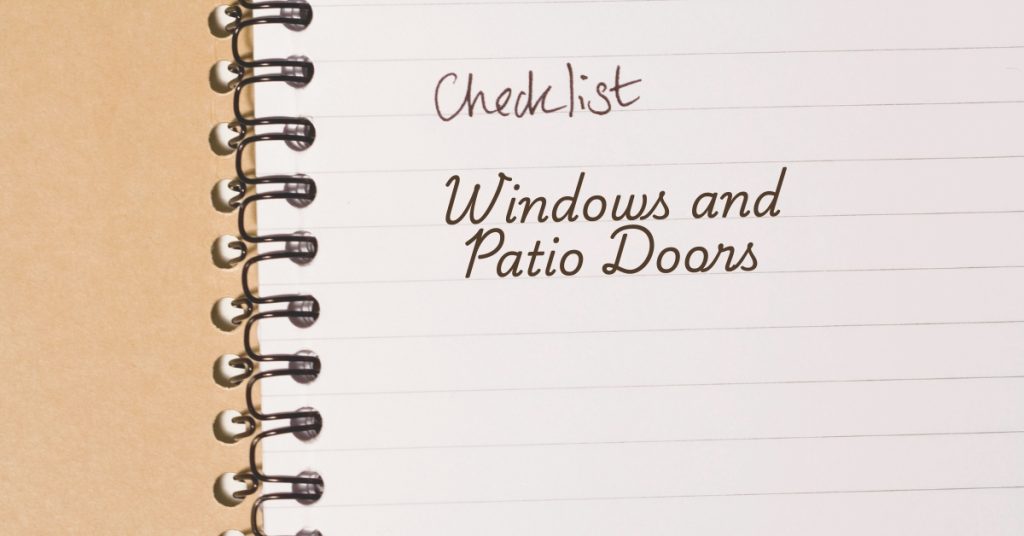 Checklist
Windows and
Patio Doors